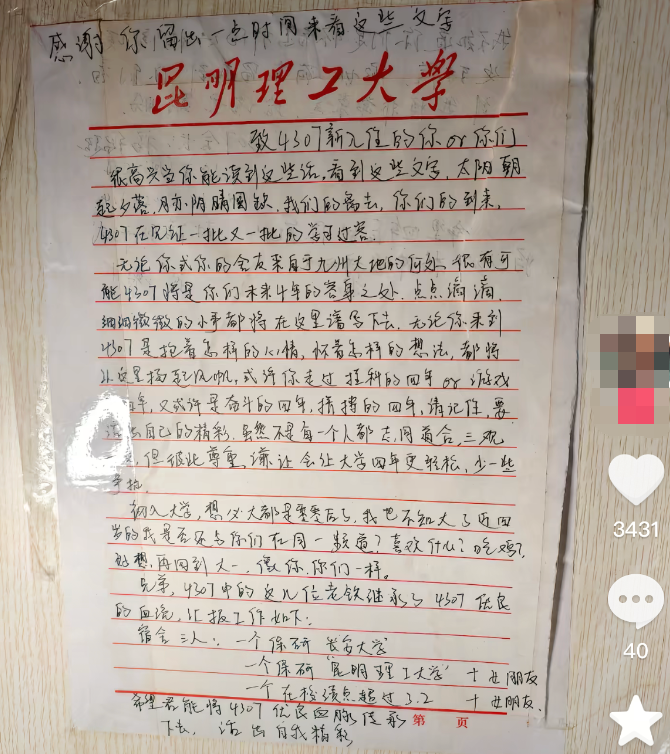 感谢你留出一点时间来看这些文字
昆明理工大学
致4307新入住的你or你们
很高兴当你能读到这些话，看到这些文字，太阳朝
起夕落，月亦阴晴圆缺，我们的离去，你们的到来，
4307在见证一批又一批的学子过客。
无论你或你的舍友来自于九州大地的何处，很有可
能4307将是你们未来4年的容身之处，点点滴滴，
细细微微的小事都将在这里谱写下去，无论你来到
4307是抱着怎样的心情，怀着怎样的想法，都将
从这里扬起风帆，或许你走过挂科的四年or游戏
年，又或许是奋斗的四年，拼搏的四年，请记住，要
活出自己的精彩，虽然不是每一个人都志同道合，三观
，但彼此尊重，谦让会让大学四年更轻松，少一些
争执。
初入大学，想必大都是零零后了，我也不知大了近四
岁的我是否还与你们在同一频道？喜欢什么？吃鸡？
想再回到大一，像你，你们一样。
兄弟，4307中的这几位老铁继承了4307优良
的血统，汇报工作如下：
宿舍三人：一个保研 长安大学
一个保研“昆明理工大学”＋女朋友
一个在校绩点超过3.2 ＋女朋友.
希望君能将4307优良血脉传承 第 页
下去，活出自我精彩
3431
40